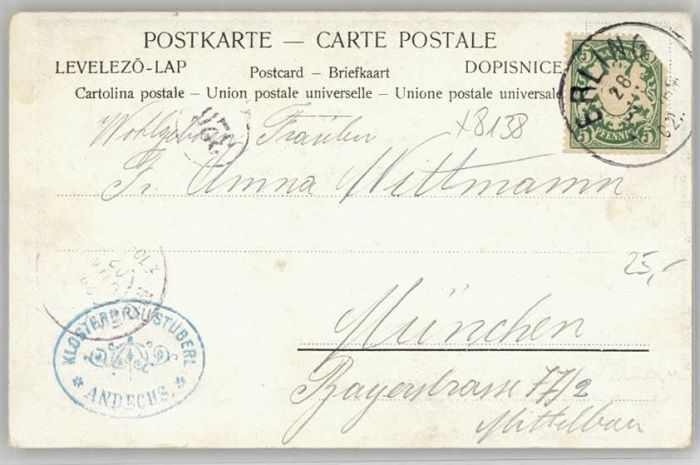 POSTKARTE — CARTE POSTALE
LEVELEZŐ-LAP Postcard – Briefkaart DOPISNICE
Cartolina postale – Union postale universelle – Unione postale universale
ERLING
28
5 PFENNIG 5
Wohlgeboren Fräulein x8138
Fr. Anna Wittmann
25,-
München
Bayerstrasse 77/2
Mittelbau
KLOSTERBRÄUSTÜBERL
ANDECHS.